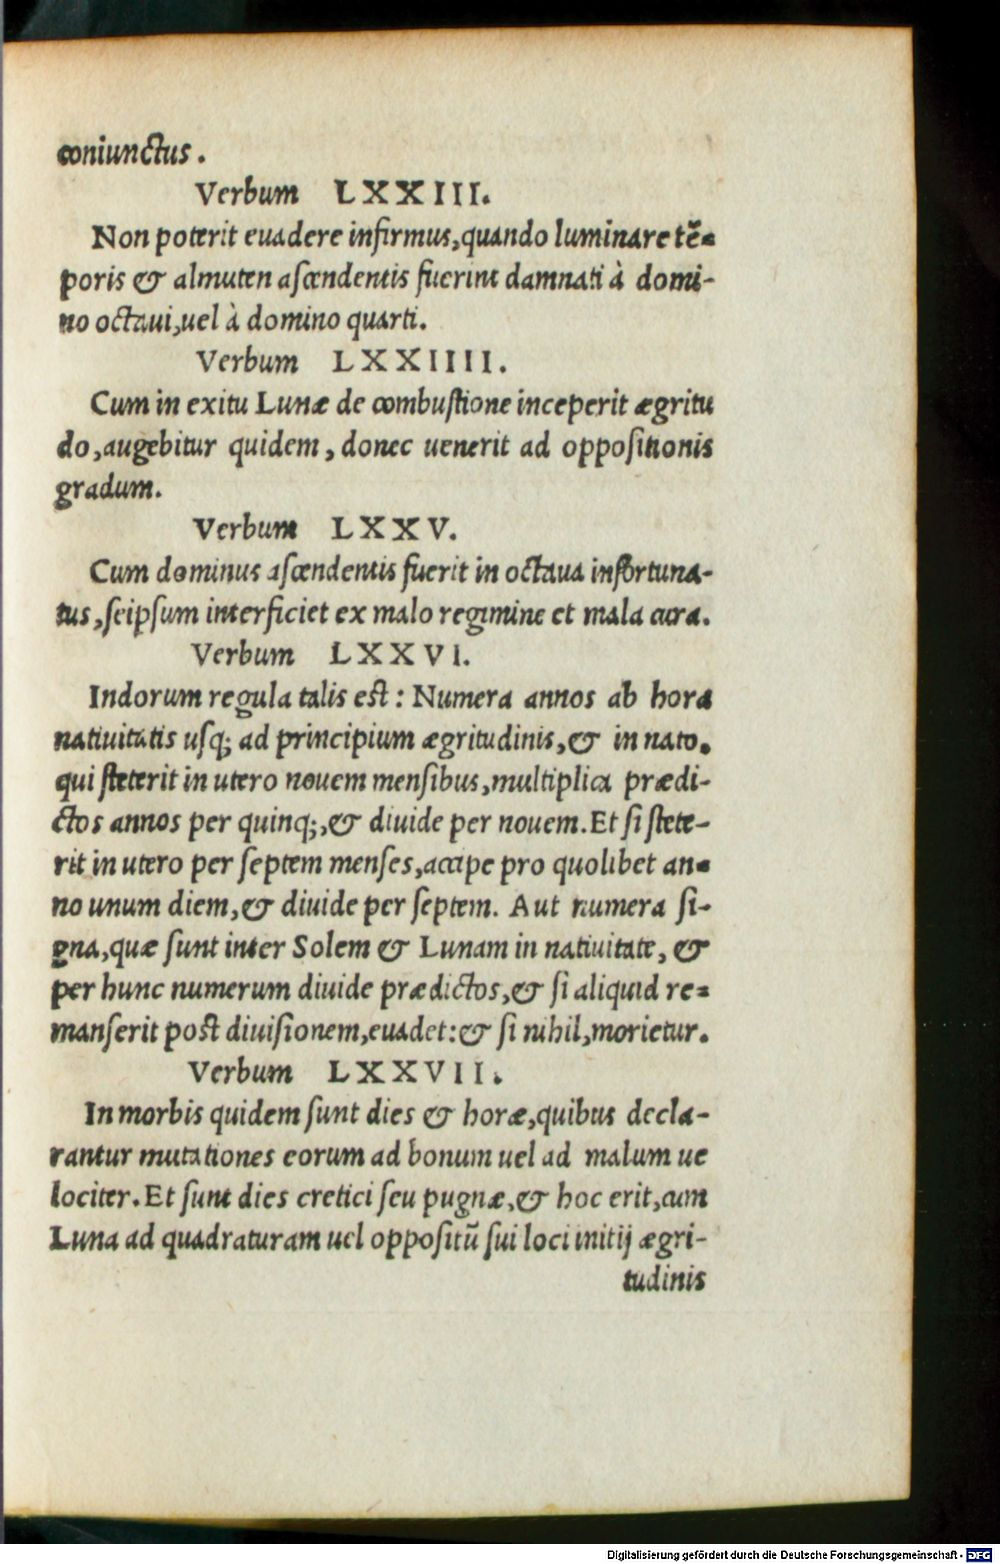 coniunctus.
Verbum LXXIII.
Non poterit euadere infirmus,quando luminare tẽ-
poris & almuten ascendentis fuerint damnati à domi-
no octaui,uel à domino quarti.
Verbum LXXIIII.
Cum in exitu Lunæ de combustione inceperit ægritu
do,augebitur quidem, donec uenerit ad oppositionis
gradum.
Verbum LXXV.
Cum dominus ascendentis fuerit in octaua infortuna-
tus,seipsum interficiet ex malo regimine et mala cura.
Verbum LXXVI.
Indorum regula talis est: Numera annos ab hora
natiuitatis usq; ad principium ægritudinis,& in nato.
qui steterit in utero nouem mensibus,multiplica prædi-
ctos annos per quinq;,& diuide per nouem.Et si stete-
rit in utero per septem menses,accipe pro quolibet an-
no unum diem,& diuide per septem. Aut numera si-
gna,quæ sunt inter Solem & Lunam in natiuitate, &
per hunc numerum diuide prædictos,& si aliquid re-
manserit post diuisionem,euadet:& si nihil,morietur.
Verbum LXXVII.
In morbis quidem sunt dies & horæ,quibus decla-
rantur mutationes eorum ad bonum uel ad malum ue
lociter.Et sunt dies cretici seu pugnæ,& hoc erit,cum
Luna ad quadraturam uel oppositũ sui loci initij ægri-
tudinis
Digitalisierung gefördert durch die Deutsche Forschungsgemeinschaft - DFG